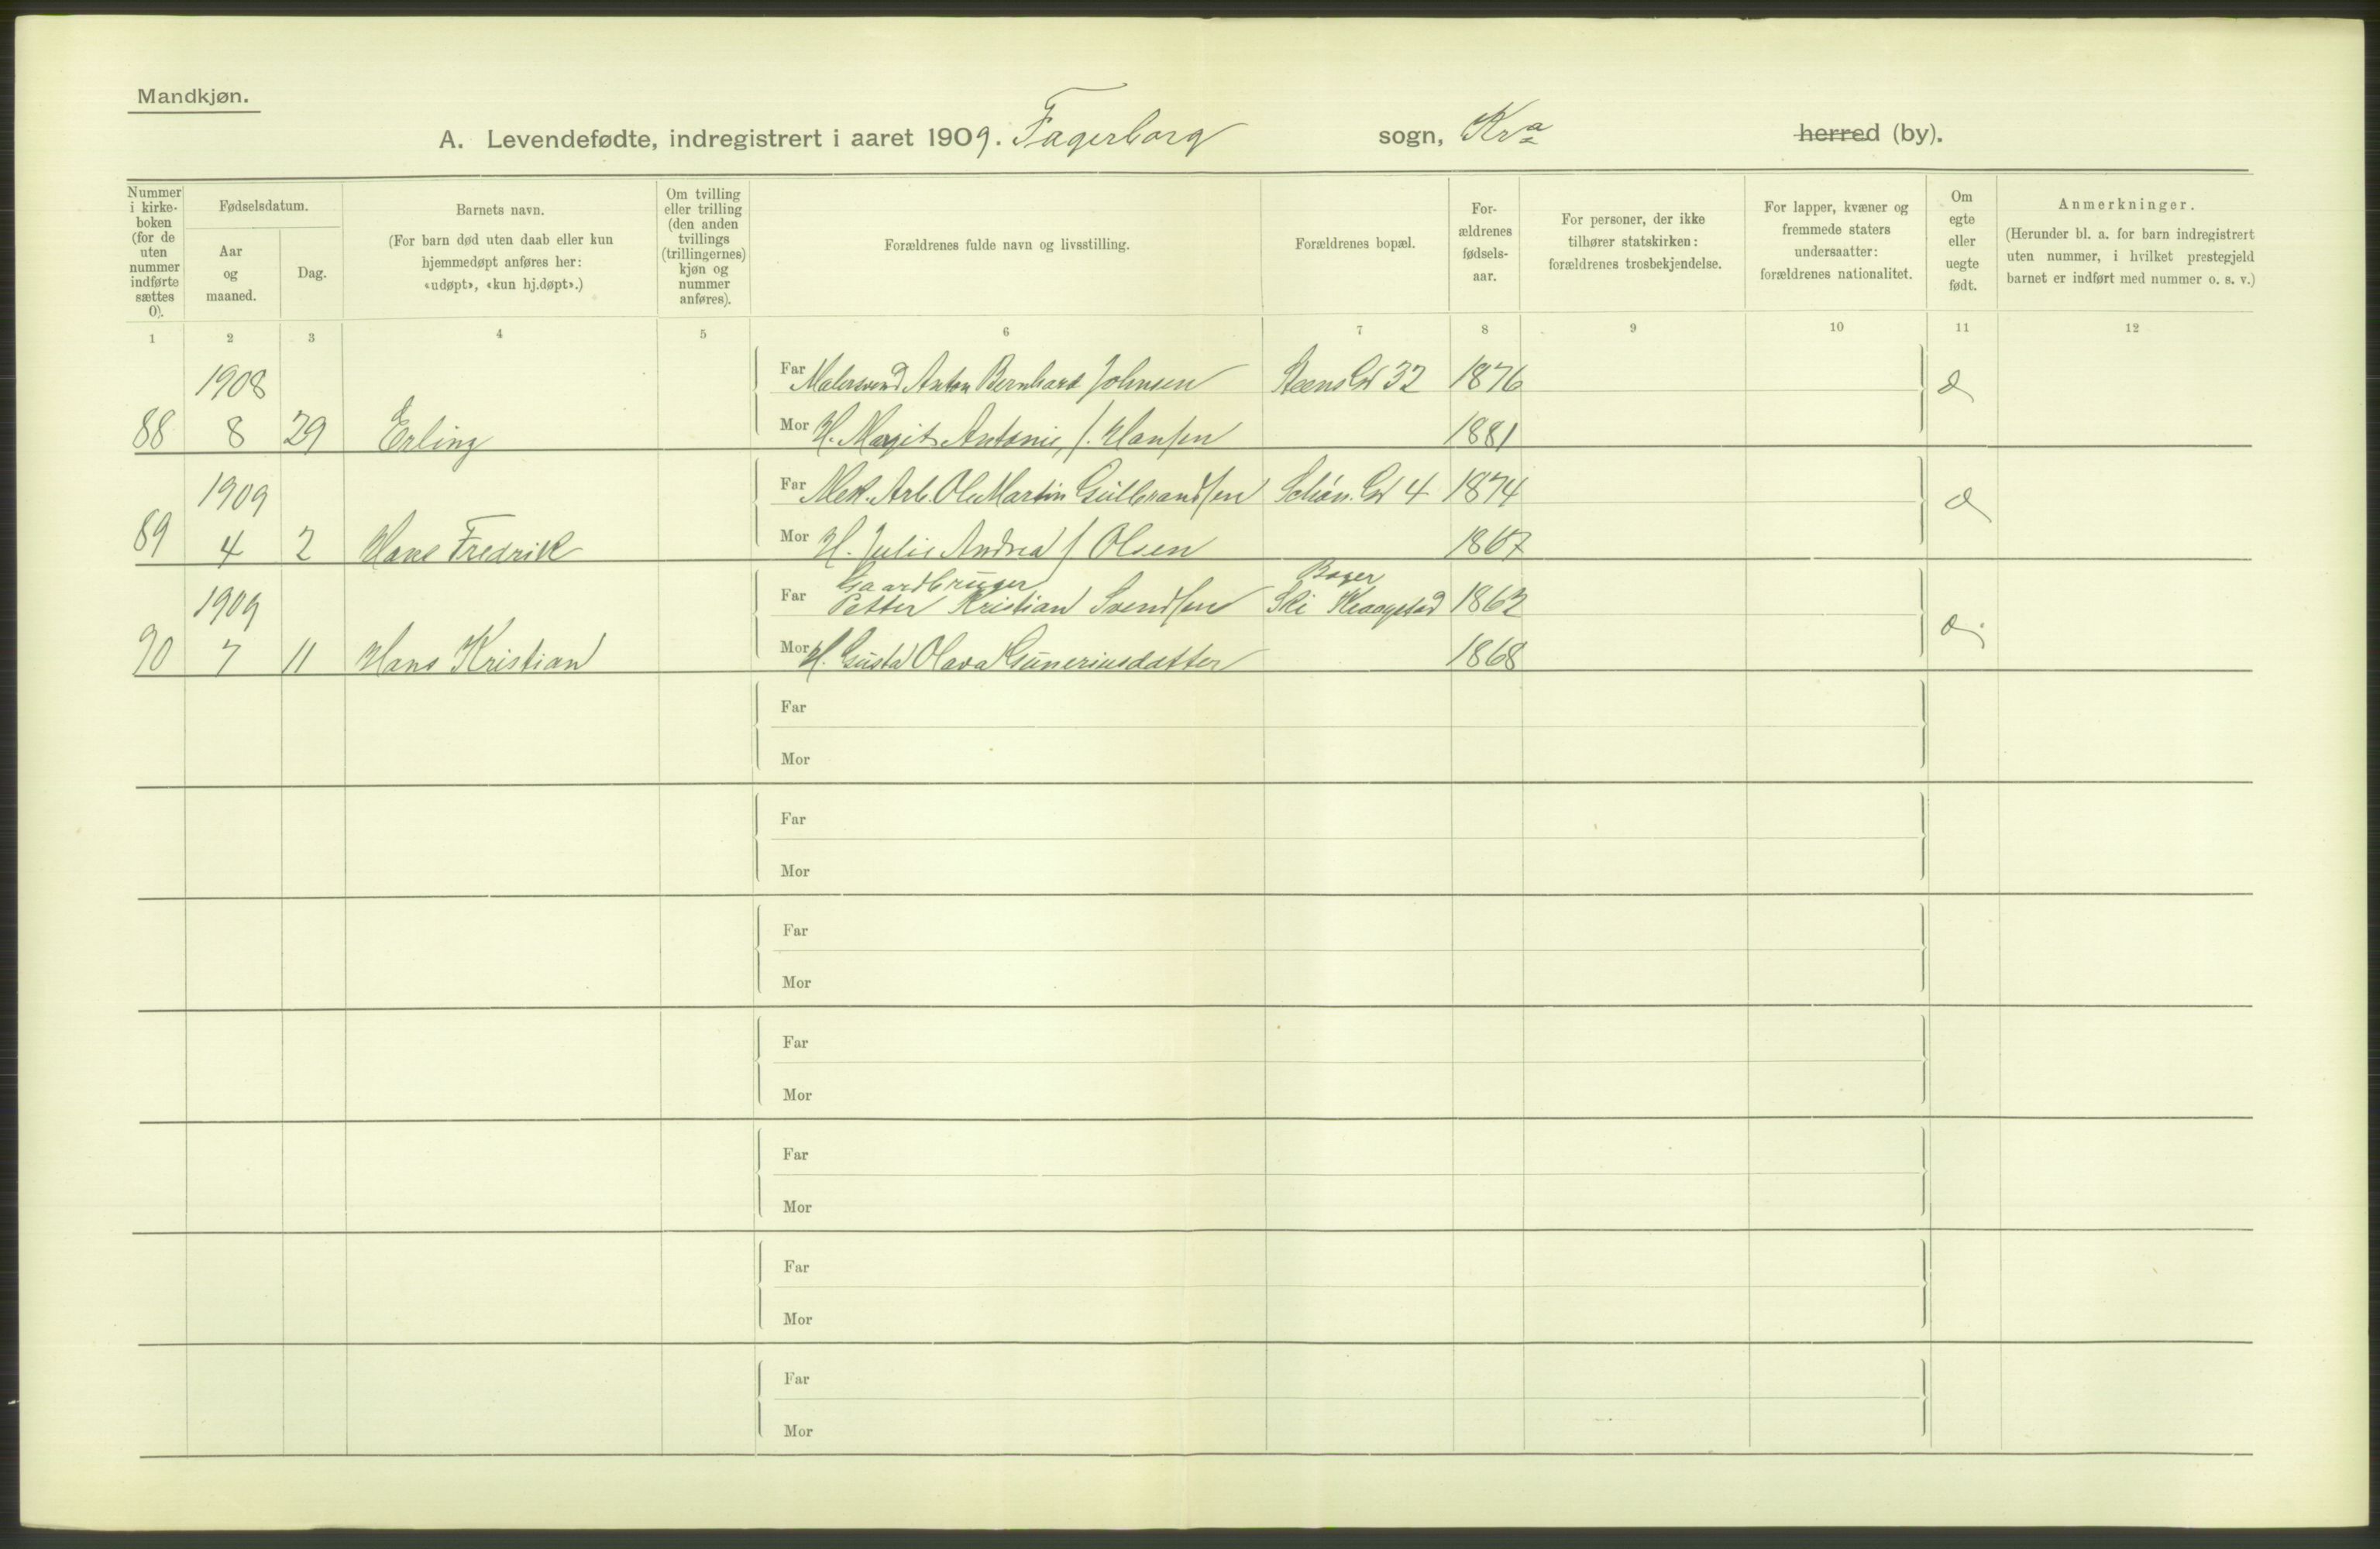 Mandkjøn.
A. Levendefødte, indregistrert i aaret 1909. Fagerborg sogn, Kra herred (by).
Nummer i kirke-boken (for de uten nummer indførte sættes 0).
Fødselsdatum.
Aar og maaned.
Dag.
Barnets navn.
(For barn død uten daab eller kun hjemmedøpt anføres her: «udøpt», «kun hj.døpt».)
Om tvilling eller trilling (den anden tvillings (trillingernes) kjøn og nummer anføres).
Forældrenes fulde navn og livsstilling.
Forældrenes bopæl.
For-ældrenes fødsels-aar.
For personer, der ikke tilhører statskirken: forældrenes trosbekjendelse.
For lapper, kvæner og fremmede staters undersaatter: forældrenes nationalitet.
Om egte eller uegte født.
Anmerkninger.
(Herunder bl. a. for barn indregistrert uten nummer, i hvilket prestegjeld barnet er indført med nummer o. s. v.)
1 2 3 4 5 6 7 8 9 10 11 12
1908 Far Malersvend Anton Bernhard Johnsen Steens Gd 32 1876
88 8 29 Erling Mor H. Margit Antonie f. Hansen 1881
1909 Far Mek. Arb. Ole Martin Gulbrandsen Schøn. Gd 4 1874
89 4 2 Hans Fredrik Mor H. Julie Andrea f Olsen 1867
Gaardbruger
1909 Far Petter Kristian Svendsen Ski 1862
90 7 11 Hans Kristian Mor H. Gusta Olava Guneriusdatter 1868
Far
Mor
Far
Mor
Far
Mor
Far
Mor
Far
Mor
Far
Mor
Far
Mor